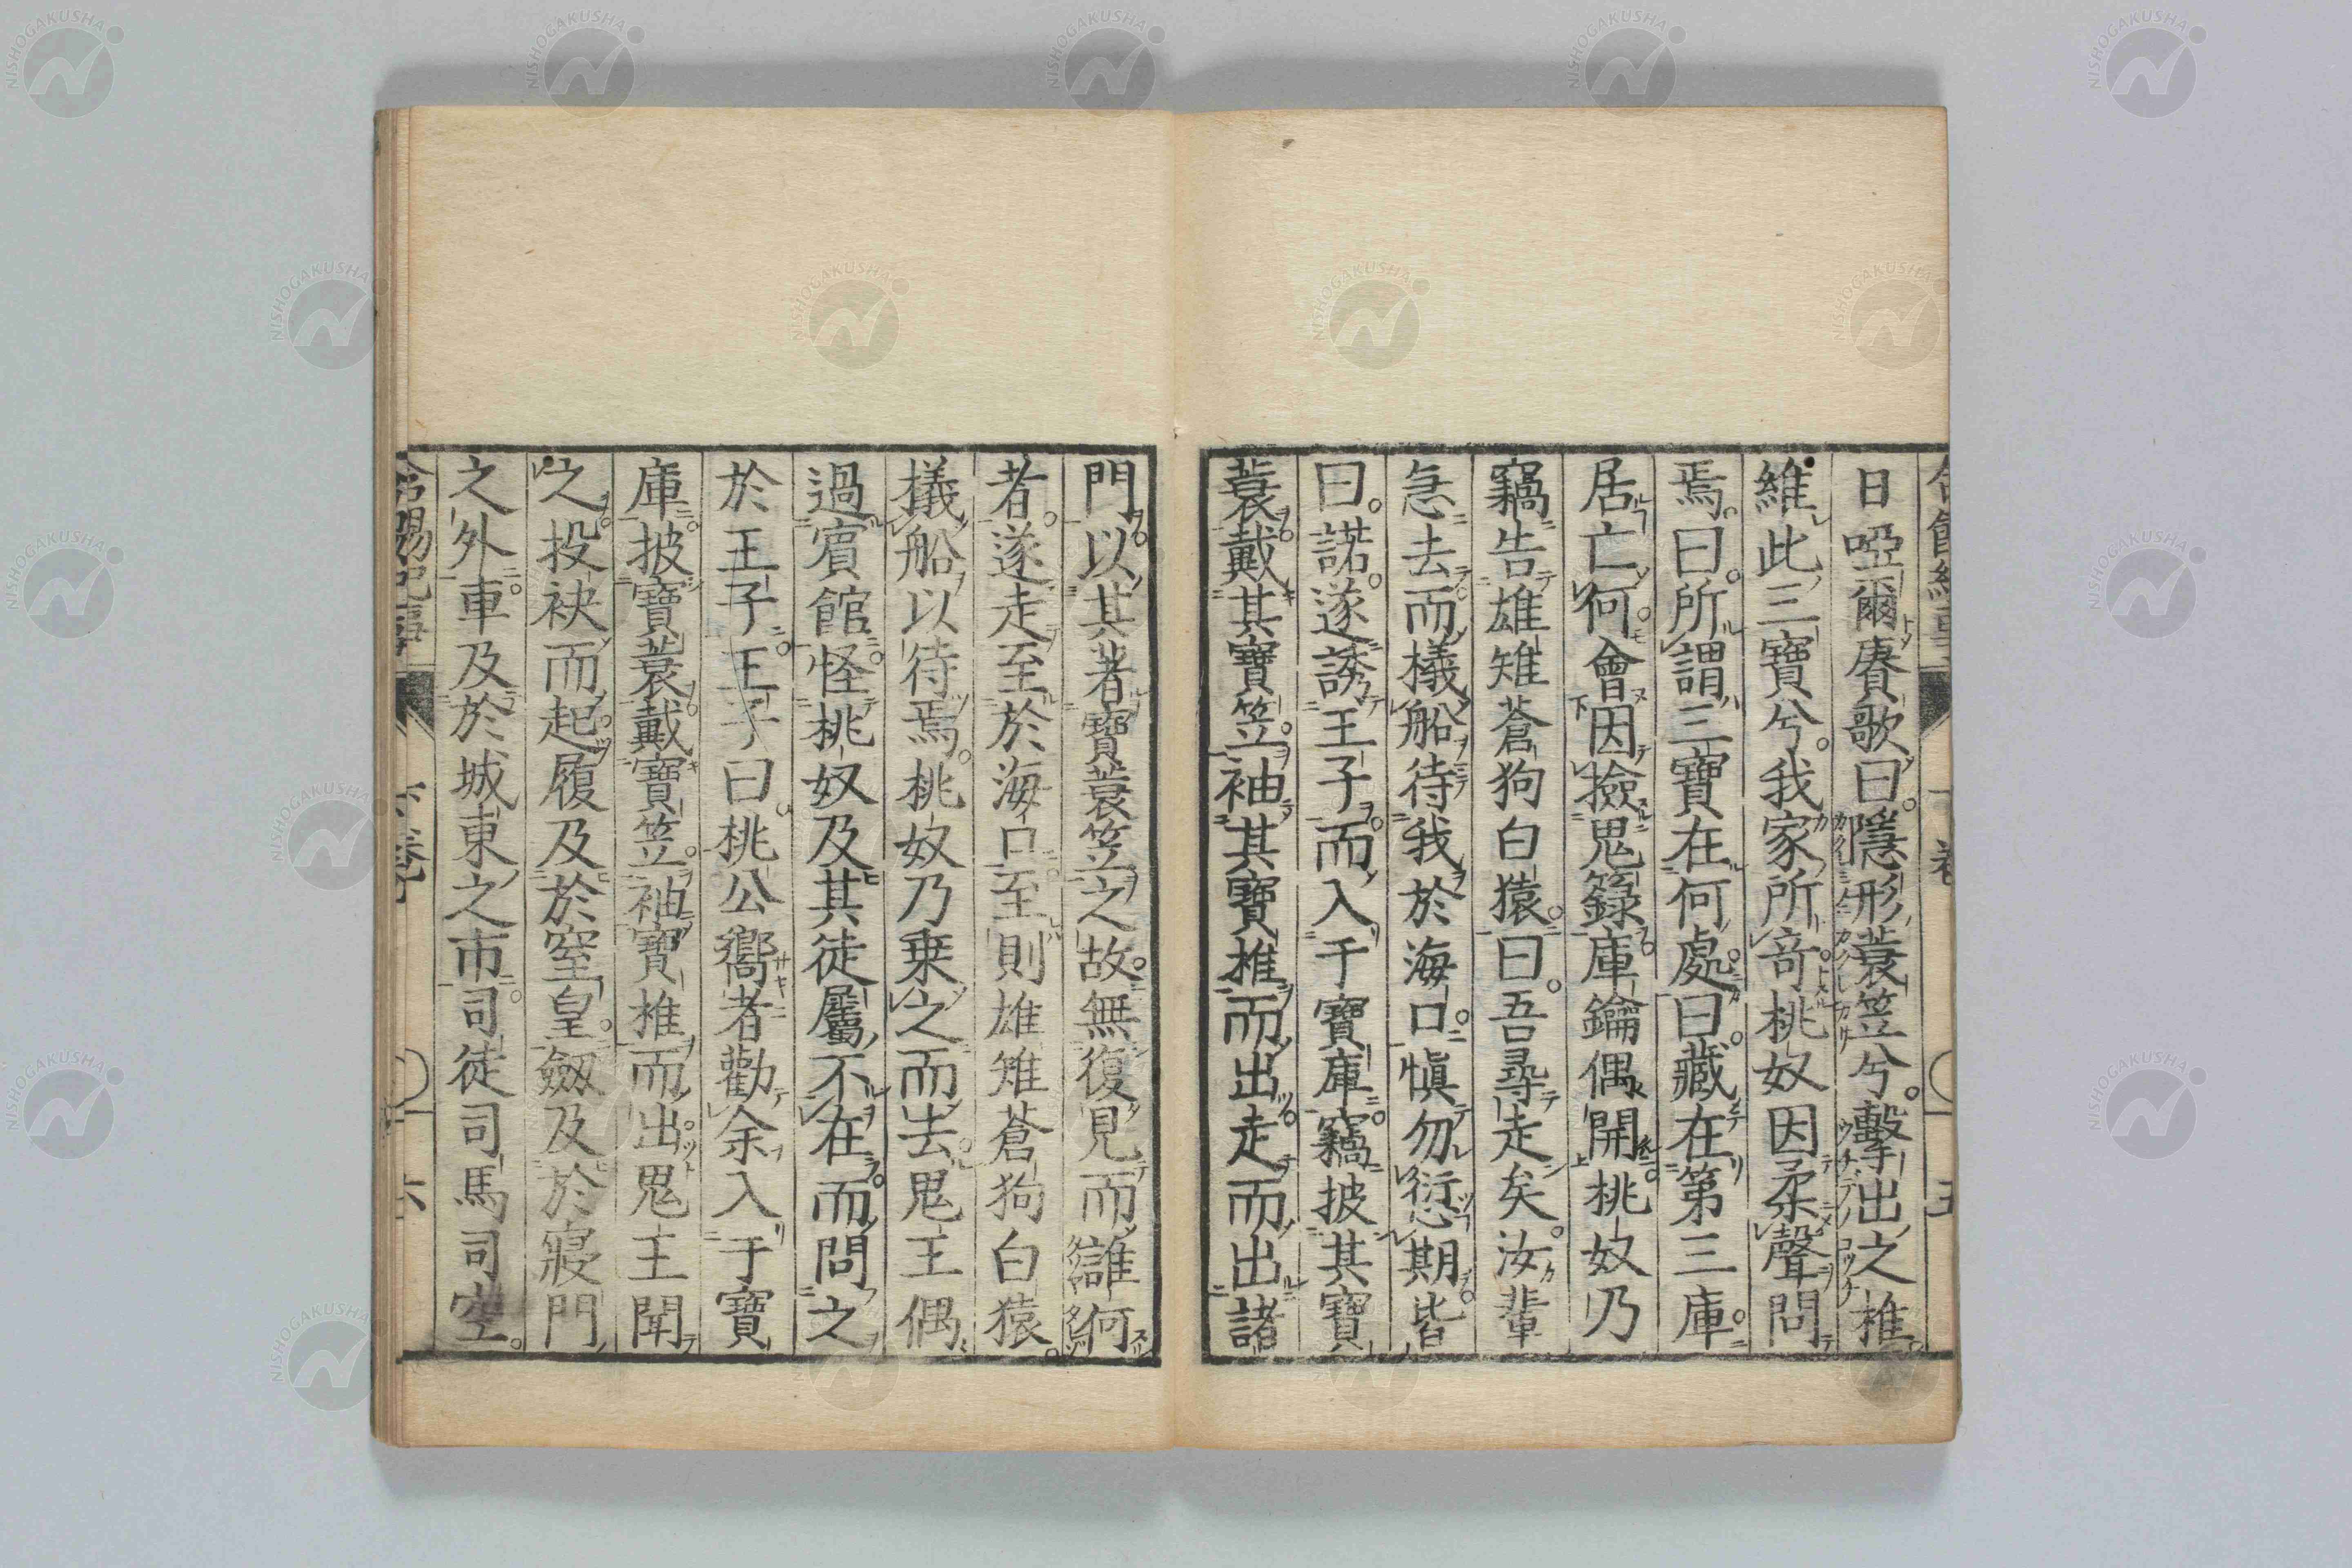 曰啞爾賡歌曰隱形蓑笠兮擊出之椎
維此三寶兮我家所竒桃奴因柔聲問
焉曰所謂三寶在何處曰藏在第三庫
居亡何會因撿鬼籙庫鑰偶開桃奴乃
竊告雄雉蒼狗白猿曰吾尋走矣汝輩
急去而檥船待我於海口愼勿衍愆期皆
曰諾遂誘王子而入于寶庫竊披其寶
蓑戴其寶笠袖其寶椎而出走而出諸
門以其著寶蓑笠之故無復見而讎何
者遂走至於海口至則雄雉蒼狗白猿
檥船以待焉桃奴乃乗之而去鬼王偶
過賓館怪桃奴及其徒屬不在而問之
於王子王子曰桃公嚮者勸余入于寶
庫披寶蓑戴寶笠袖寶椎而出鬼王聞
之投袂而起履及於窒皇劔及於寢門
之外車及於城東之市司徒司馬司空